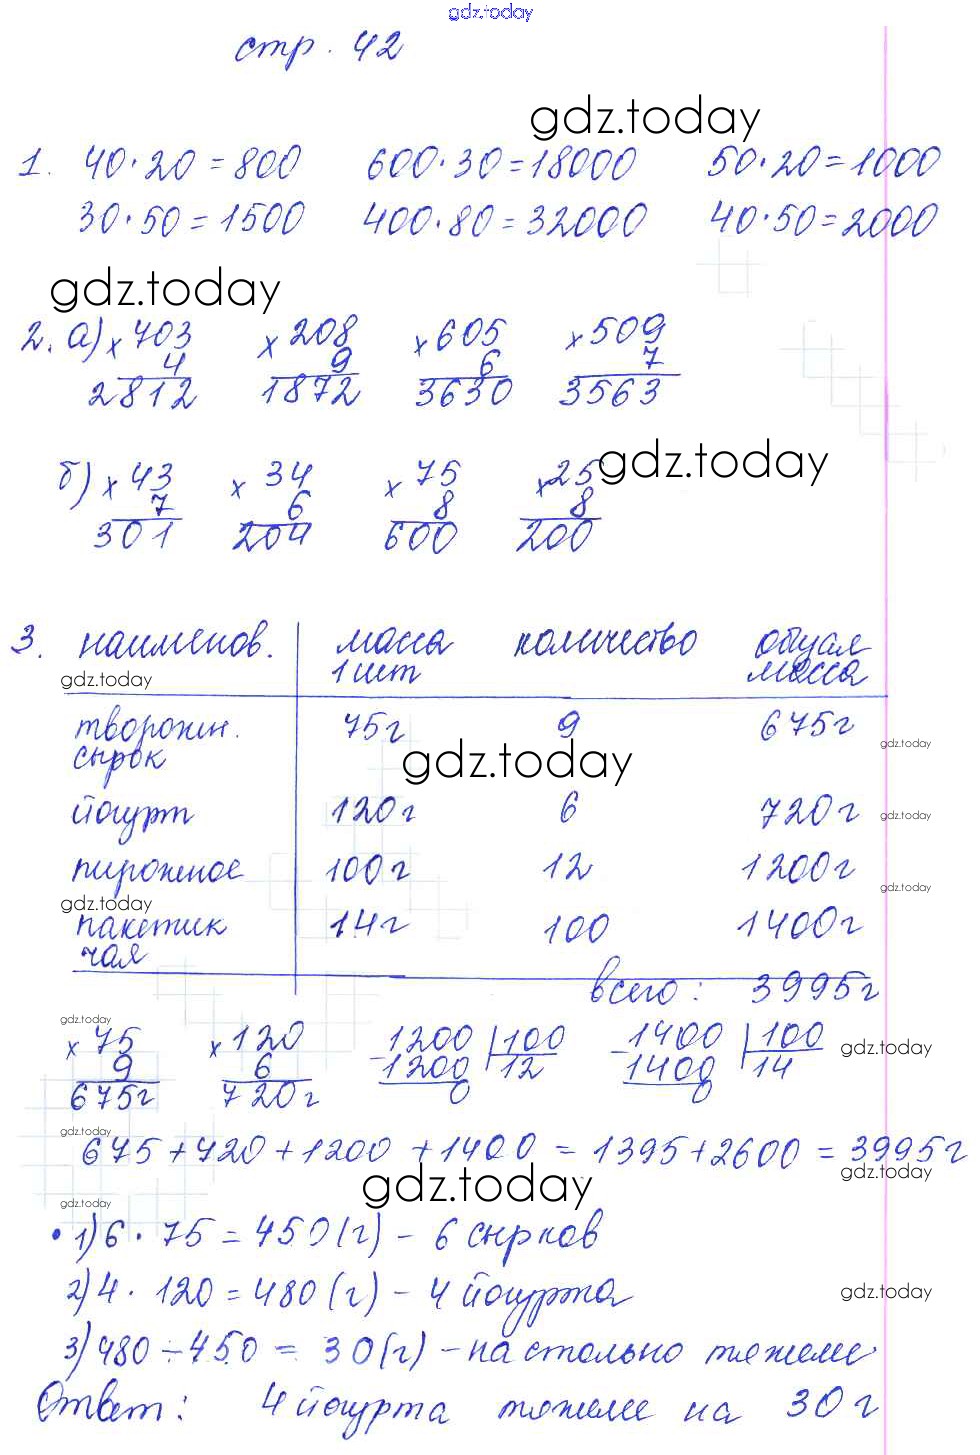 gdz.today
стр. 42
gdz.today
1. 40·20=800 600·30=18000 50·20=1000
30·50=1500 400·80=32000 40·50=2000
gdz.today
2. а) × 703 × 208 × 605 × 509
4 9 6 7
2812 1872 3630 3563
gdz.today
б) × 43 × 34 × 75 × 25
7 6 8 8
301 204 600 200
3. наименов. масса количество общая
gdz.today 1 шт масса
творожн. 75г 9 675г
сырок gdz.today gdz.today
йогурт 120г 6 720г gdz.today
пирожное 100г 12 1200г
gdz.today gdz.today
пакетик 14г 100 1400г
чая
всего: 3995г
gdz.today
× 75 × 120 - 1200 100 - 1400 100 gdz.today
9 6 1200 12 1400 14
675г 720г 0 0
gdz.today
675+720+1200+1400=1395+2600=3995г
gdz.today gdz.today
gdz.today
• 1) 6·75=450(г) – 6 сырков
2) 4·120=480(г) – 4 йогурта gdz.today
3) 480-450=30(г) – настолько тяжелее
Ответ: 4 йогурта тяжелее на 30 г